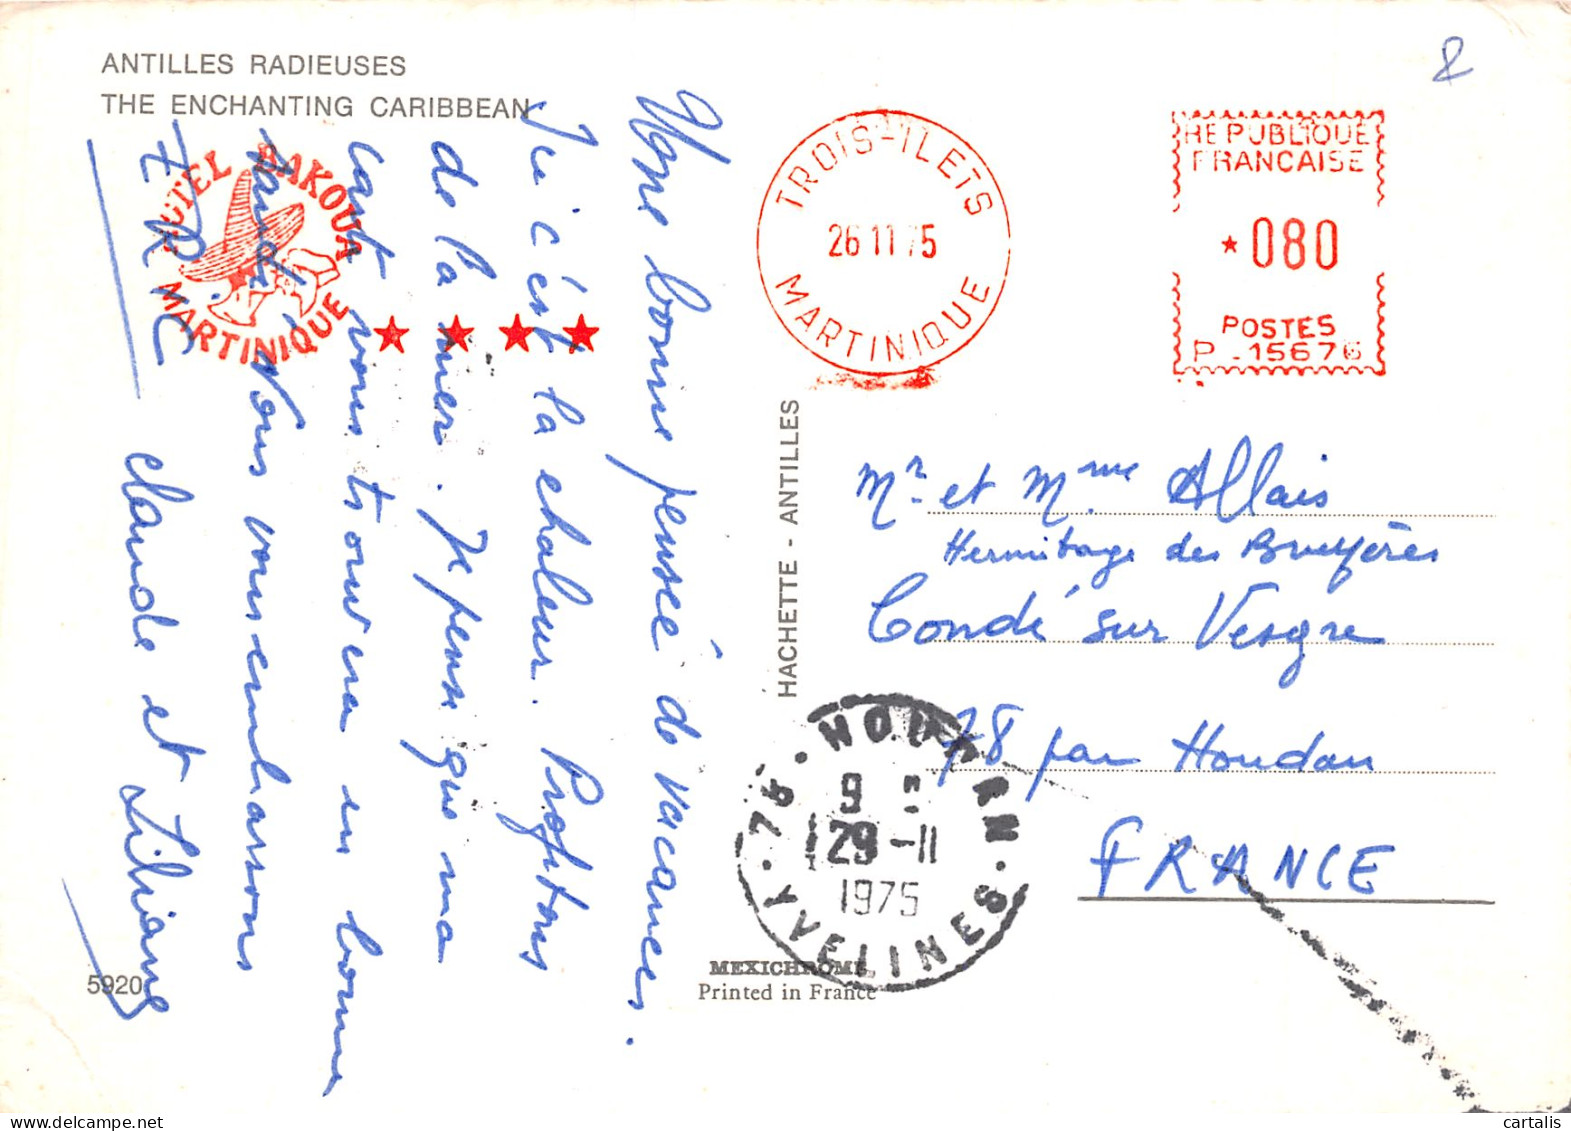 ANTILLES RADIEUSES
THE ENCHANTING CARIBBEAN
HOTEL BAKOUA
MARTINIQUE
Une bonne pensée de vacances.
Ici c'est la chaleur. Profitons
de la mer. Je pense que ma
carte vous trouvera en bonne
santé. Nous vous embrassons
Claude et Liliane
TROIS-ILETS
26 11 75
MARTINIQUE
REPUBLIQUE
FRANCAISE
★080
POSTES
P.15676
HACHETTE - ANTILLES
Mr. et Mme Allais
Hermitage des Bruyères
Condé sur Vesgre
78 par Houdan
FRANCE
78 · HOUDAN
9
29-11
1975
YVELINES
5920
MEXICHROME
Printed in France
cartalis